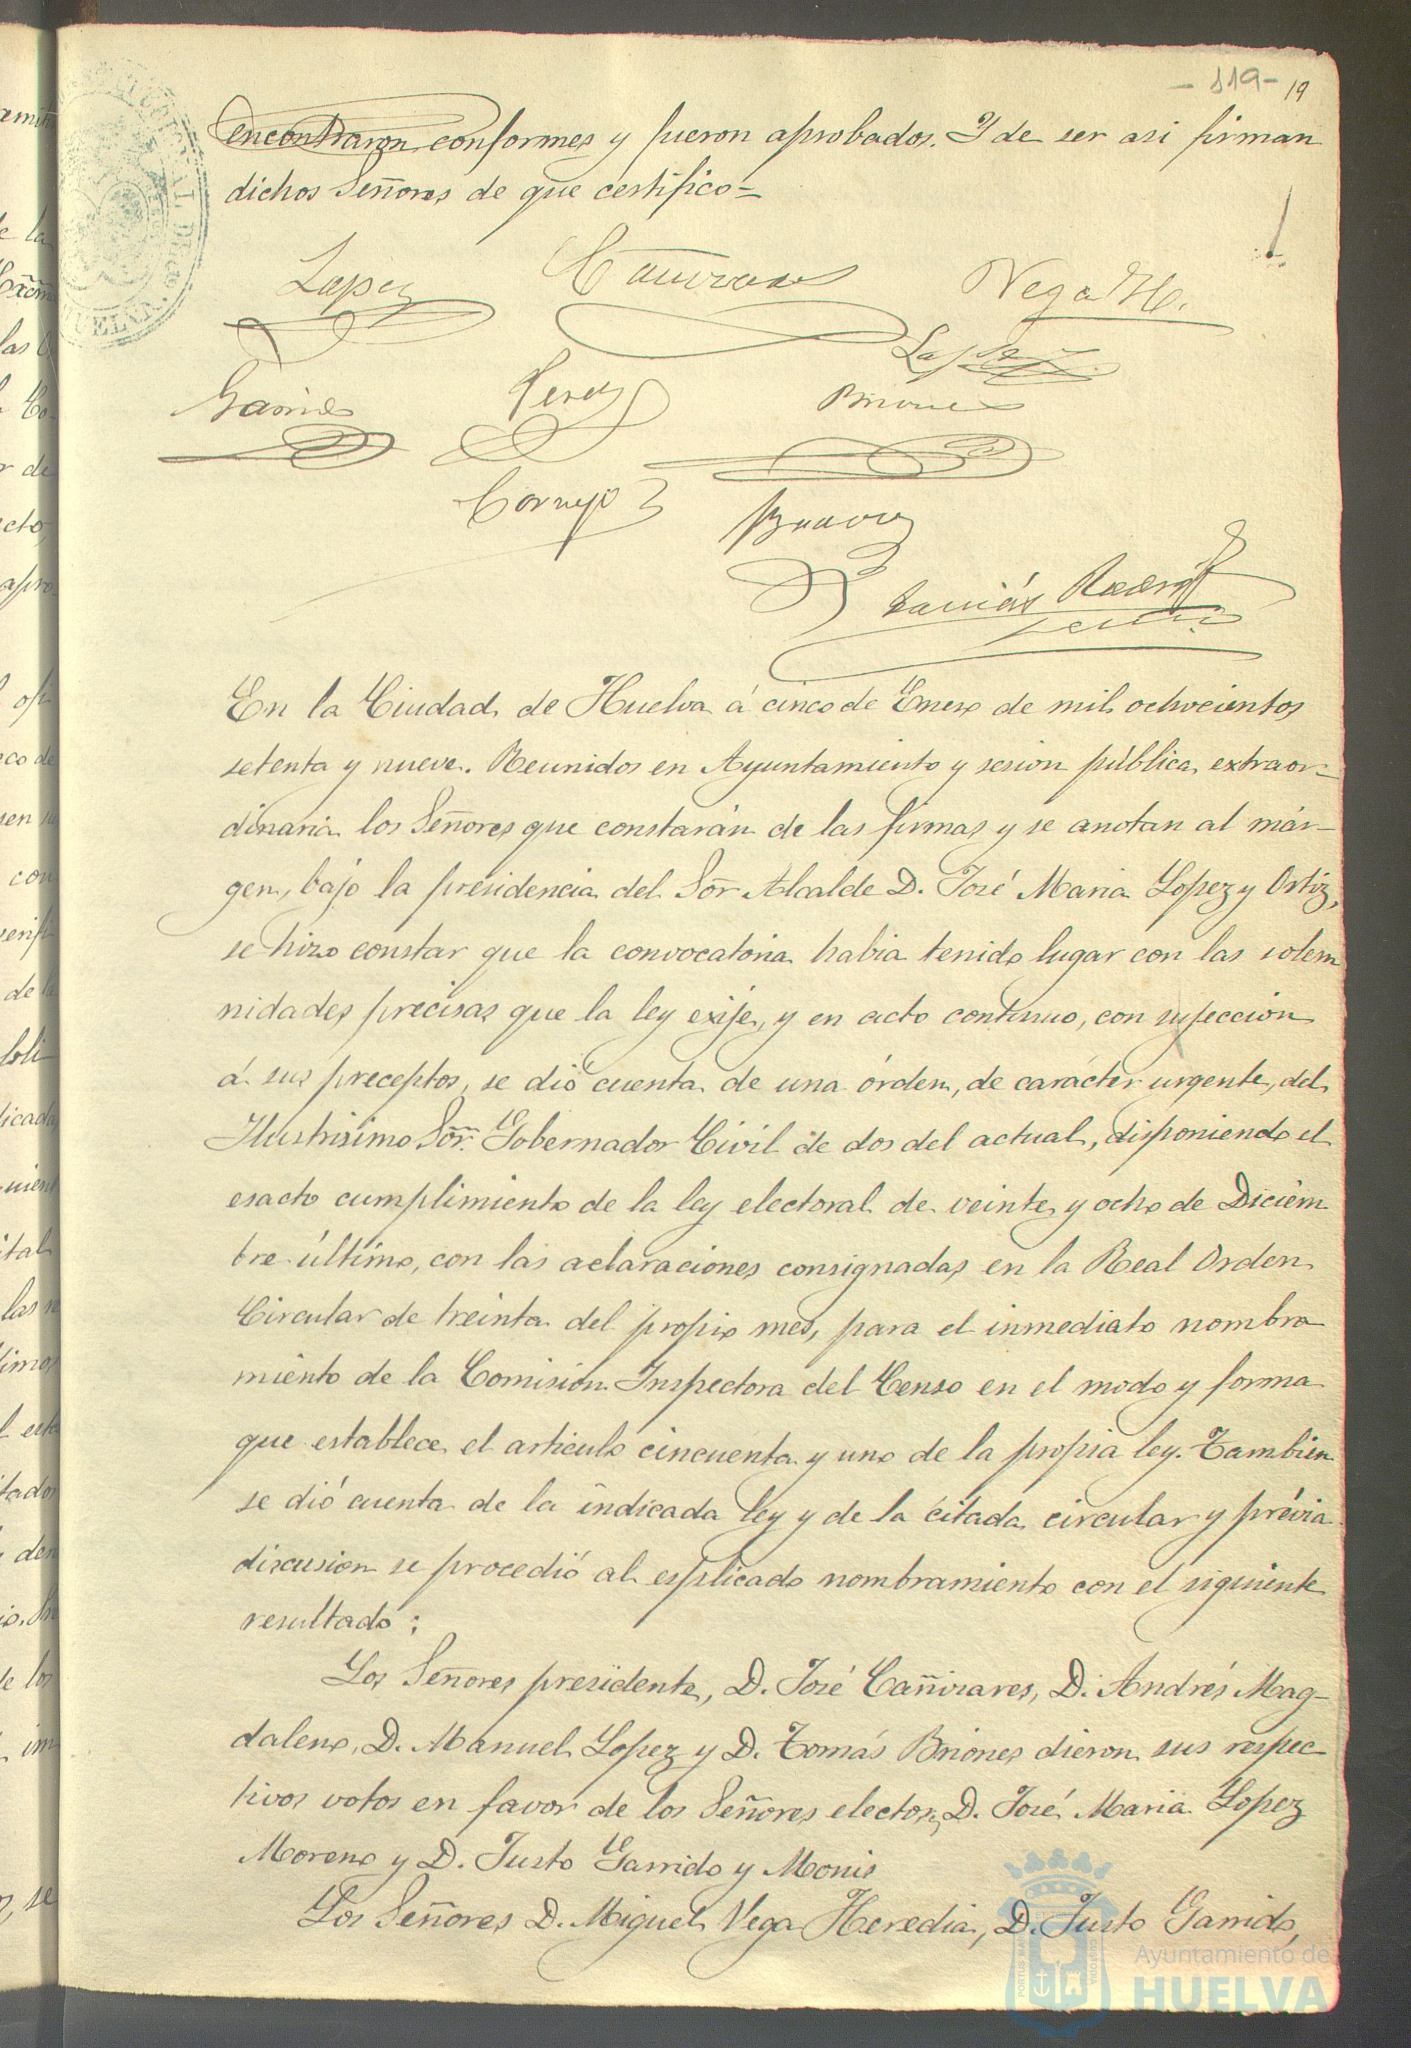 - 119 - 19
encontraron conformes y fueron aprobados. Y de ser asi firman
dichos Señores de que certifico=
Lopez Cañizares Vega H.
Lopez
Garrido Perez Briones
Cornejo Bravo
Tomás Rodrig
En la Ciudad de Huelva á cinco de Enero de mil ochocientos
setenta y nueve. Reunidos en Ayuntamiento y sesion pública extraor-
dinaria los Señores que constarán de las firmas y se anotan al már-
gen, bajo la presidencia del Sor Alcalde D. José Maria Lopez y Ortiz,
se hizo constar que la convocatoria habia tenido lugar con las solem
nidades precisas que la ley exije, y en acto continuo, con sujeccion
á sus preceptos, se dió cuenta de una órden, de carácter urgente, del
Ilustrisimo Sor. Gobernador Civil de dos del actual, disponiendo el
esacto cumplimiento de la ley electoral de veinte y ocho de Diciem
bre último, con las aclaraciones consignadas en la Real Orden
Circular de treinta del propio mes, para el inmediato nombra
miento de la Comision Inspectora del Censo en el modo y forma
que establece el articulo cincuenta y uno de la propia ley. Tambien
se dió cuenta de la indicada ley y de la citada circular y prévia
discusion se procedió al esplicado nombramiento con el siguiente
resultado:
Los Señores presidente, D. José Cañizares, D. Andrés Mag-
daleno, D. Manuel Lopez y D. Tomás Briones dieron sus respec
tivos votos en favor de los Señores electores D. José Maria Lopez
Moreno y D. Justo Garrido y Monis
Los Señores D. Miguel Vega Heredia, D. Justo Garrido,
Ayuntamiento de
HUELVA